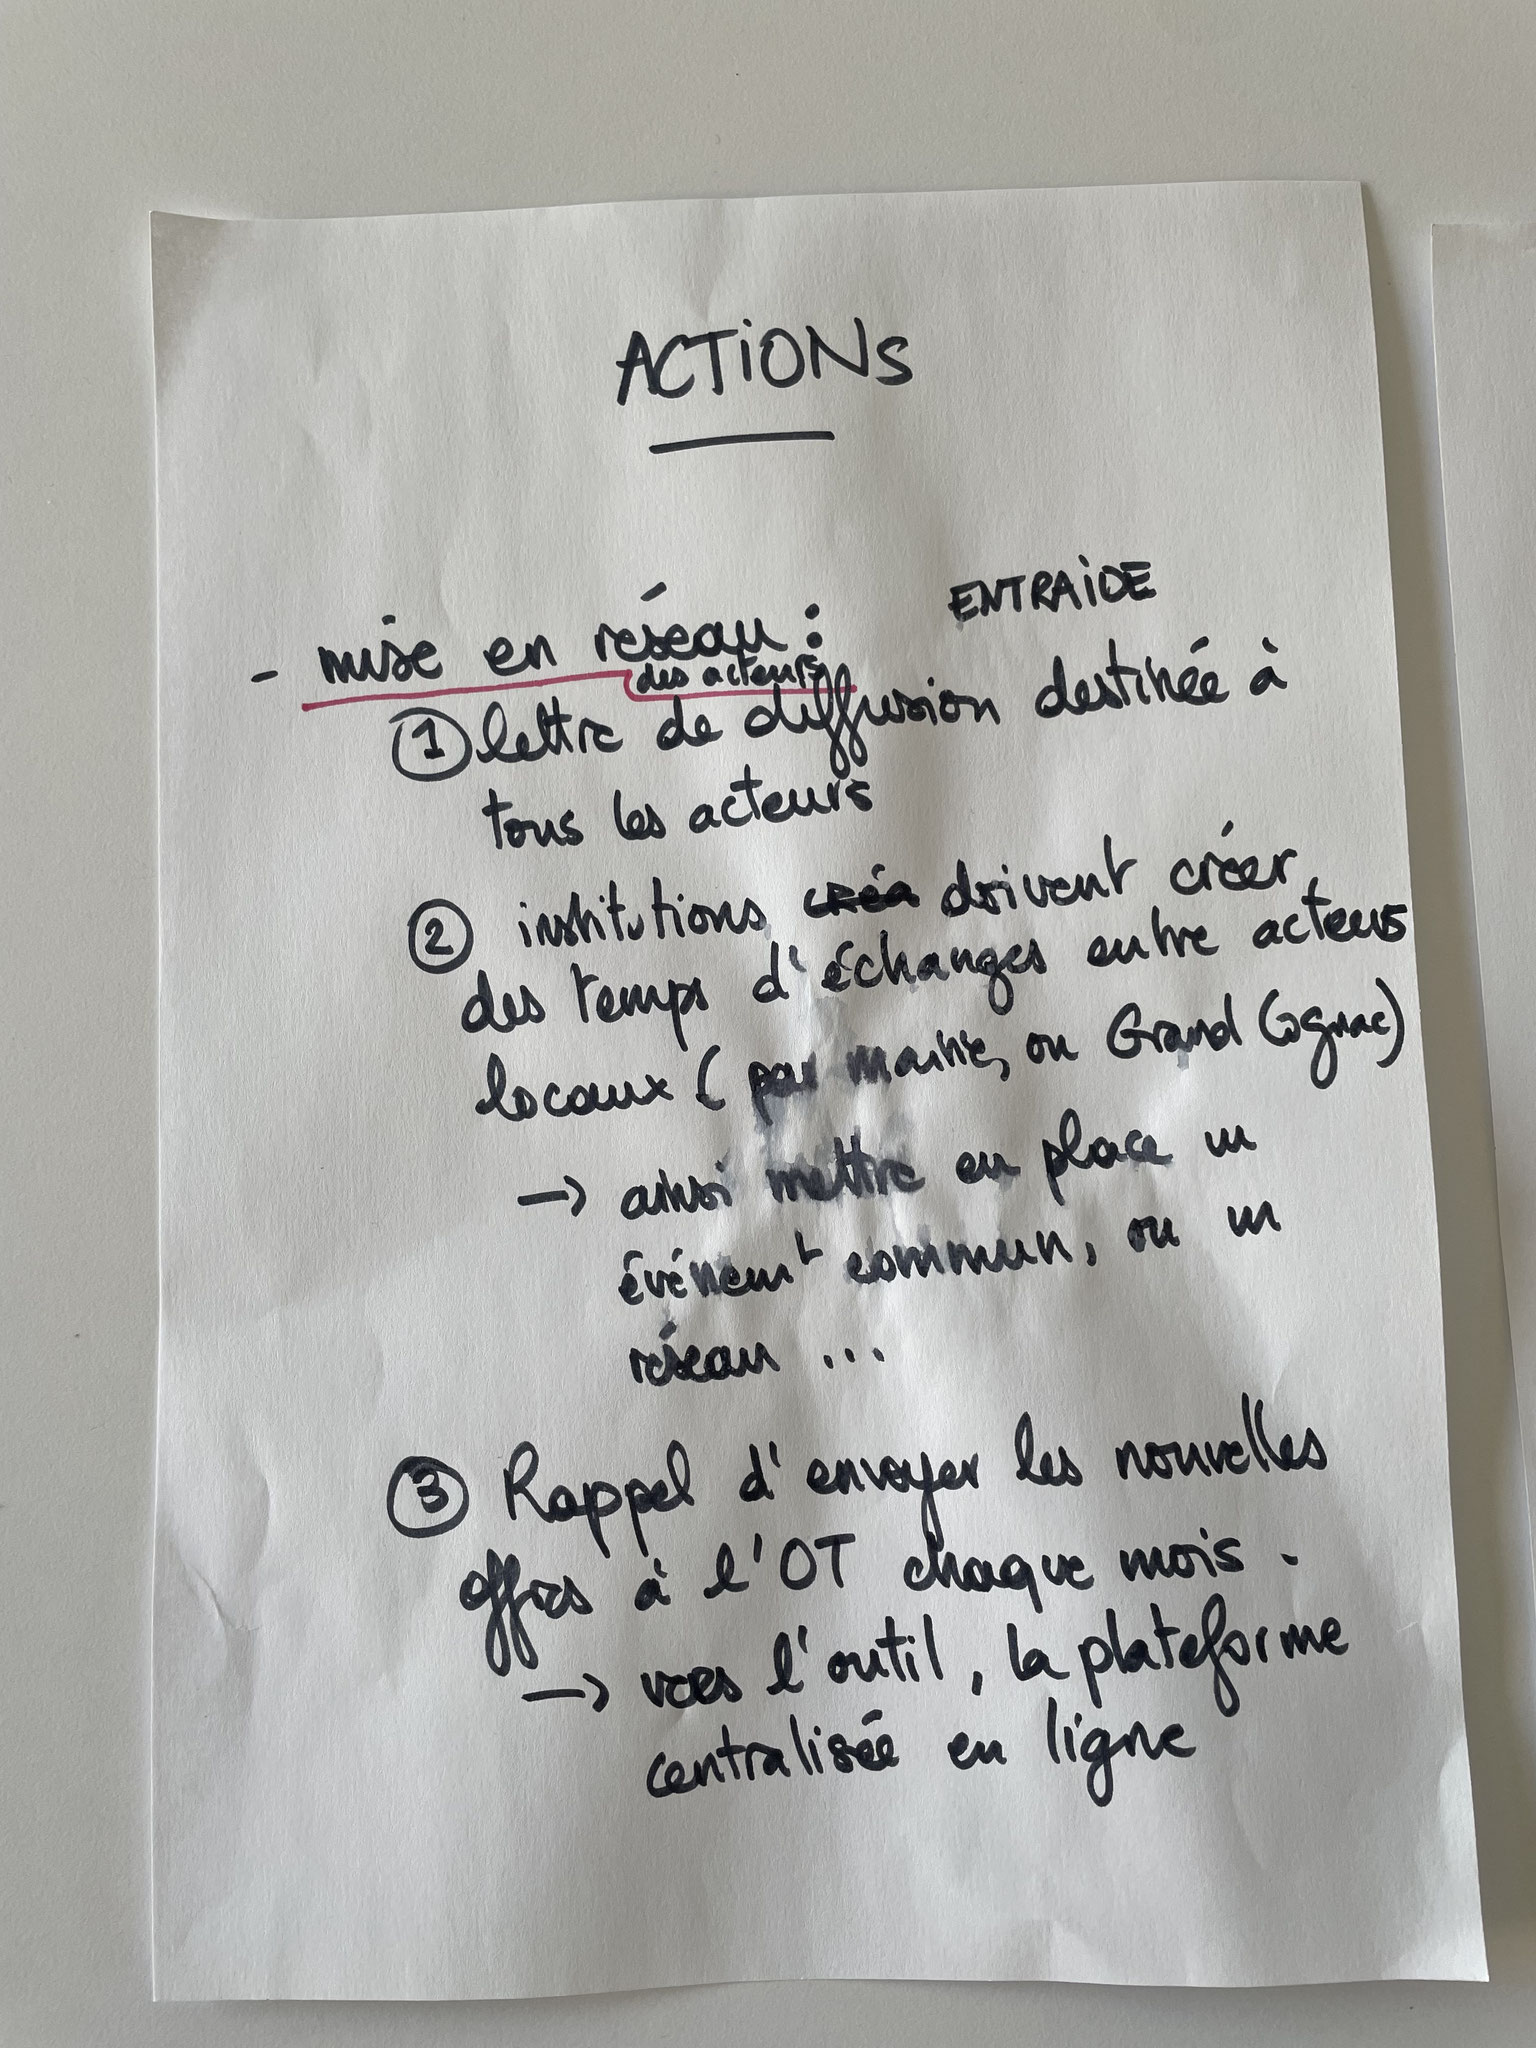 ACTiONs
ENTRAiDE
- mise en réseau :
des acteurs
① lettre de diffusion destinée à
tous les acteurs
② institutions créa doivent créer
des temps d'échanges entre acteurs
locaux ( par mairie, ou Grand Cognac)
→ ainsi mettre en place un
événemt commun, ou un
réseau ...
③ Rappel d'envoyer les nouvelles
offres à l'OT chaque mois .
→ vers l'outil, la plateforme
centralisée en ligne